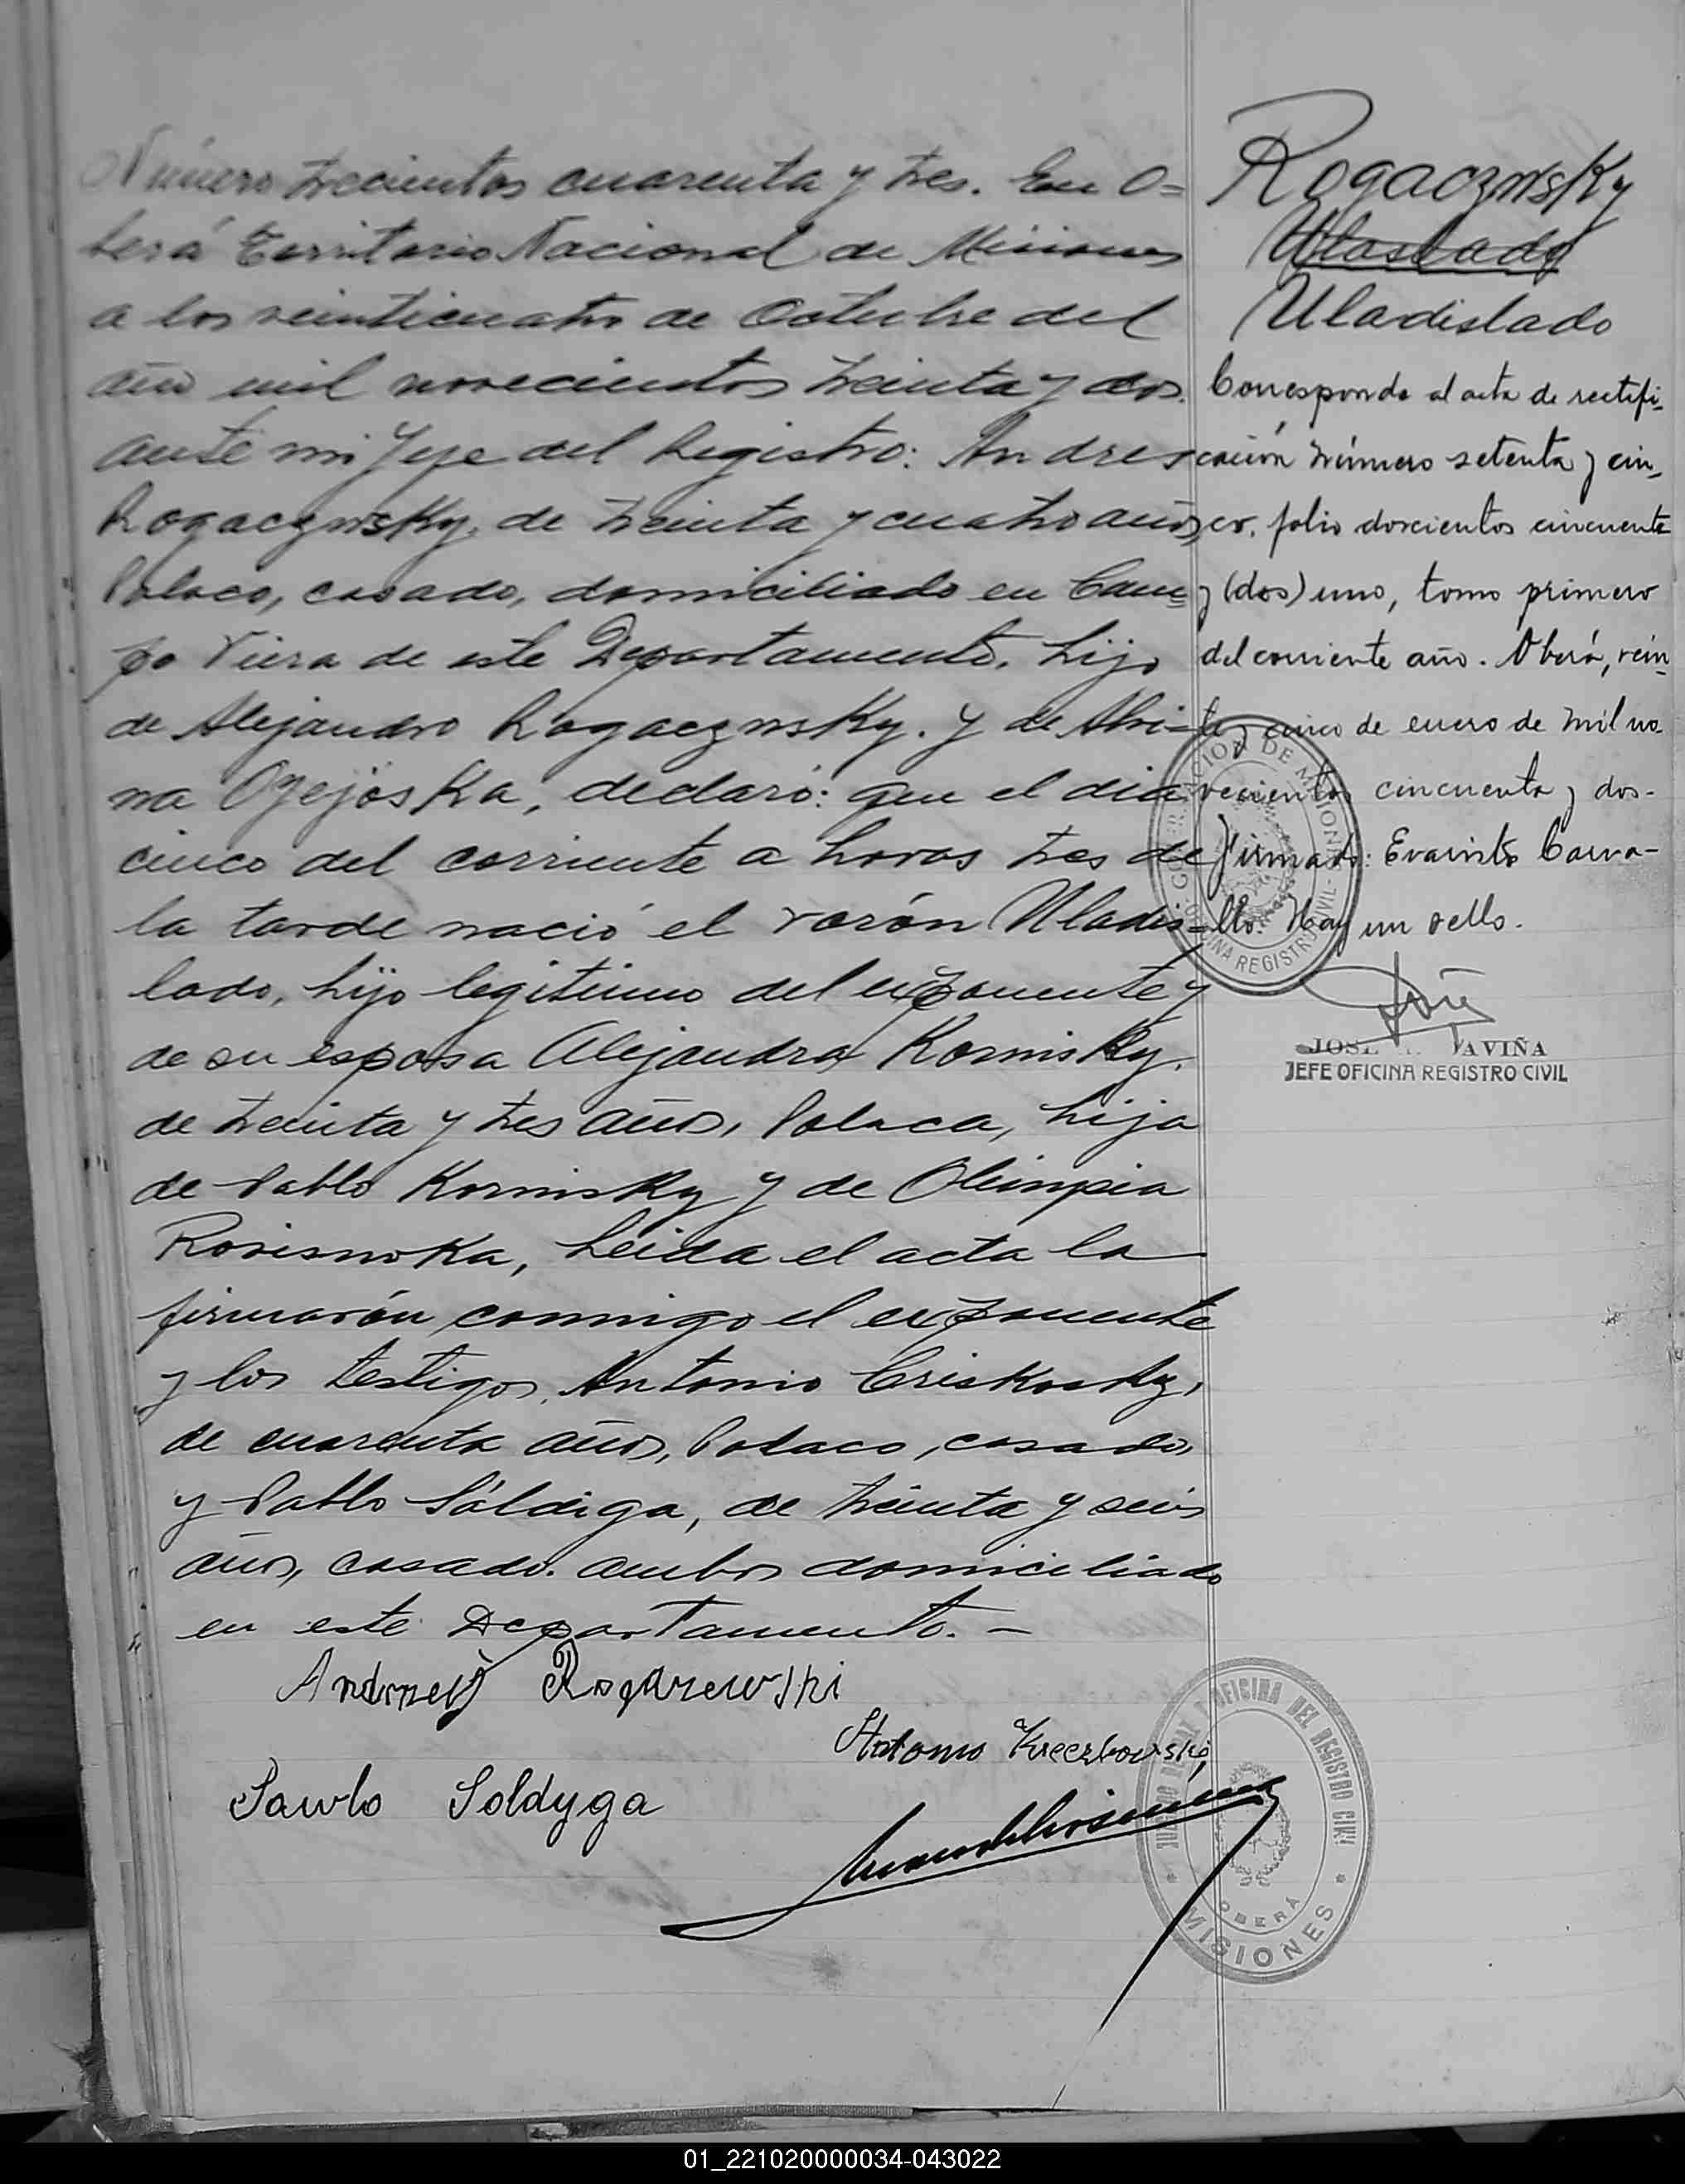 Número trecientos cuarenta y tres. En O=
berá Territorio Nacional de Misiones
a los veinticuatro de Octubre del
año mil novecientos treinta y dos.
ante mi Jefe del Registro: Andres
Rogacznsky, de treinta y cuatro años,
Polaco, casado, domiciliado en Cam=
po Viera de este Departamento. hijo
de Alejandro Rogacznsky. y de
na Ozejoska, declaró: que el dia
cinco del corriente a horas tres de
la tarde nació el varón Uladis=
lado, hijo legitimo del exponente y
de su esposa Alejandra Kornisky.
de treinta y tres años, Polaca, hija
de Pablo Kornisky y de Olimpia
Rosisnoka, Leida el acta la
firmarón conmigo el exponente
y los testigos. Antonio Criskosky,
de cuarenta años, Polaco, casado,
y Pablo Sóldiga, de treinta y seis
años, casado. ambos domiciliado
en este Departamento. —
Andrzej Rogaczewski
Antonio
Pawlo Soldyga
Rogacznsky
Uladislado
Corresponde al acta de rectifi-
cación número setenta y cin-
co. folio doscientos cincuenta
y (dos) uno, tomo primero
del corriente año. Oberá, vein-
te y cinco de enero de mil no-
vecientos cincuenta y dos-
Firmado: Evaristo Carva-
llo. Hay un sello.
GOBERNACION DE MISIONES
OFICINA REGISTRO CIVIL
JOSE AVIÑA
JEFE OFICINA REGISTRO CIVIL
JUZGADO DE PAZ Y OFICINA DEL REGISTRO CIVIL
OBERÁ
MISIONES
01_221020000034-043022